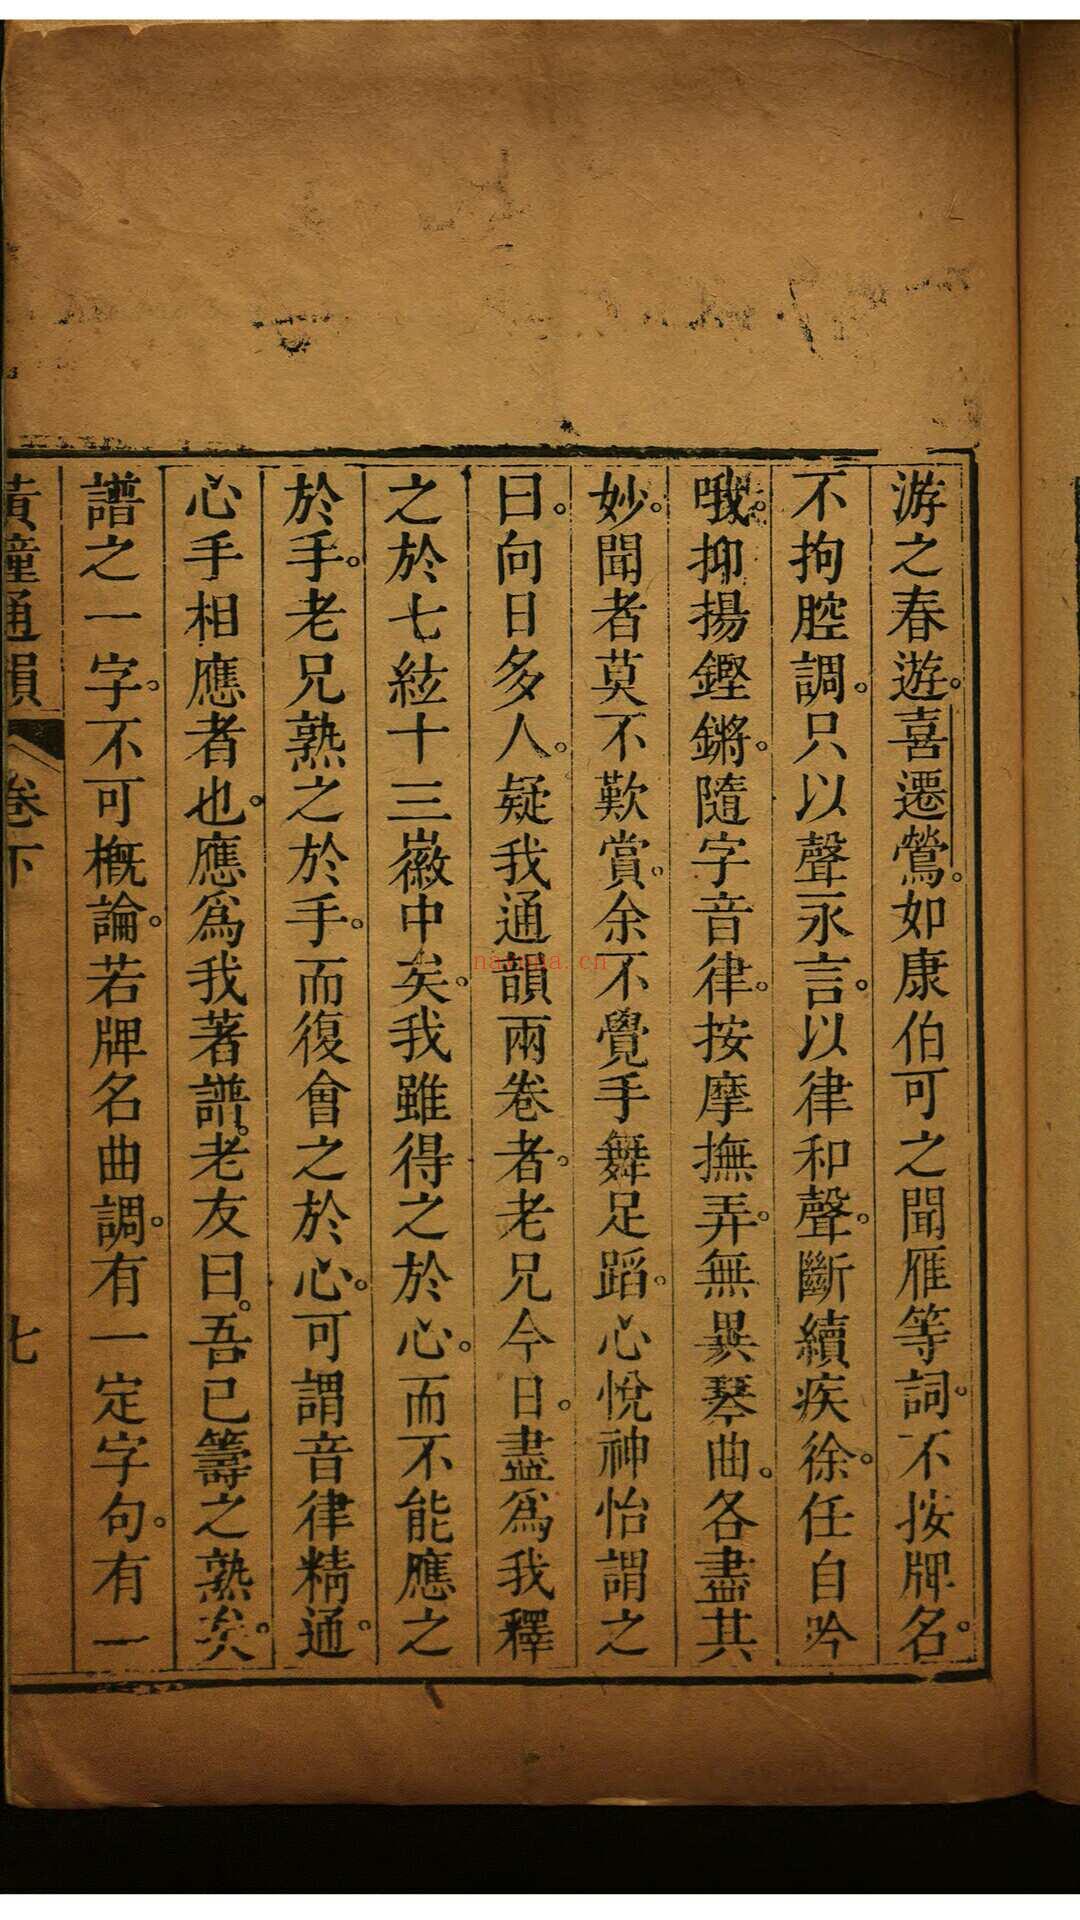 游之春遊。喜遷鶯。如康伯可之聞雁等詞。不按牌名。
不拘腔調。只以聲永言。以律和聲。斷續疾徐。任自吟
哦。抑揚鏗鏘。隨字音律。按摩撫弄。無異琴曲。各盡其
妙。聞者莫不歎賞。余不覺手舞足蹈。心悅神怡謂之
曰。向日多人。疑我通韻兩卷者。老兄今日。盡爲我釋
之於七絃十三徽中矣。我雖得之於心。而不能應之
於手。老兄熟之於手。而復會之於心。可謂音律精通。
心手相應者也。應爲我著譜。老友曰。吾已籌之熟矣。
譜之一字。不可概論。若牌名曲調。有一定字句。有一
黃鐘通韻 卷下 七
nayona.cn